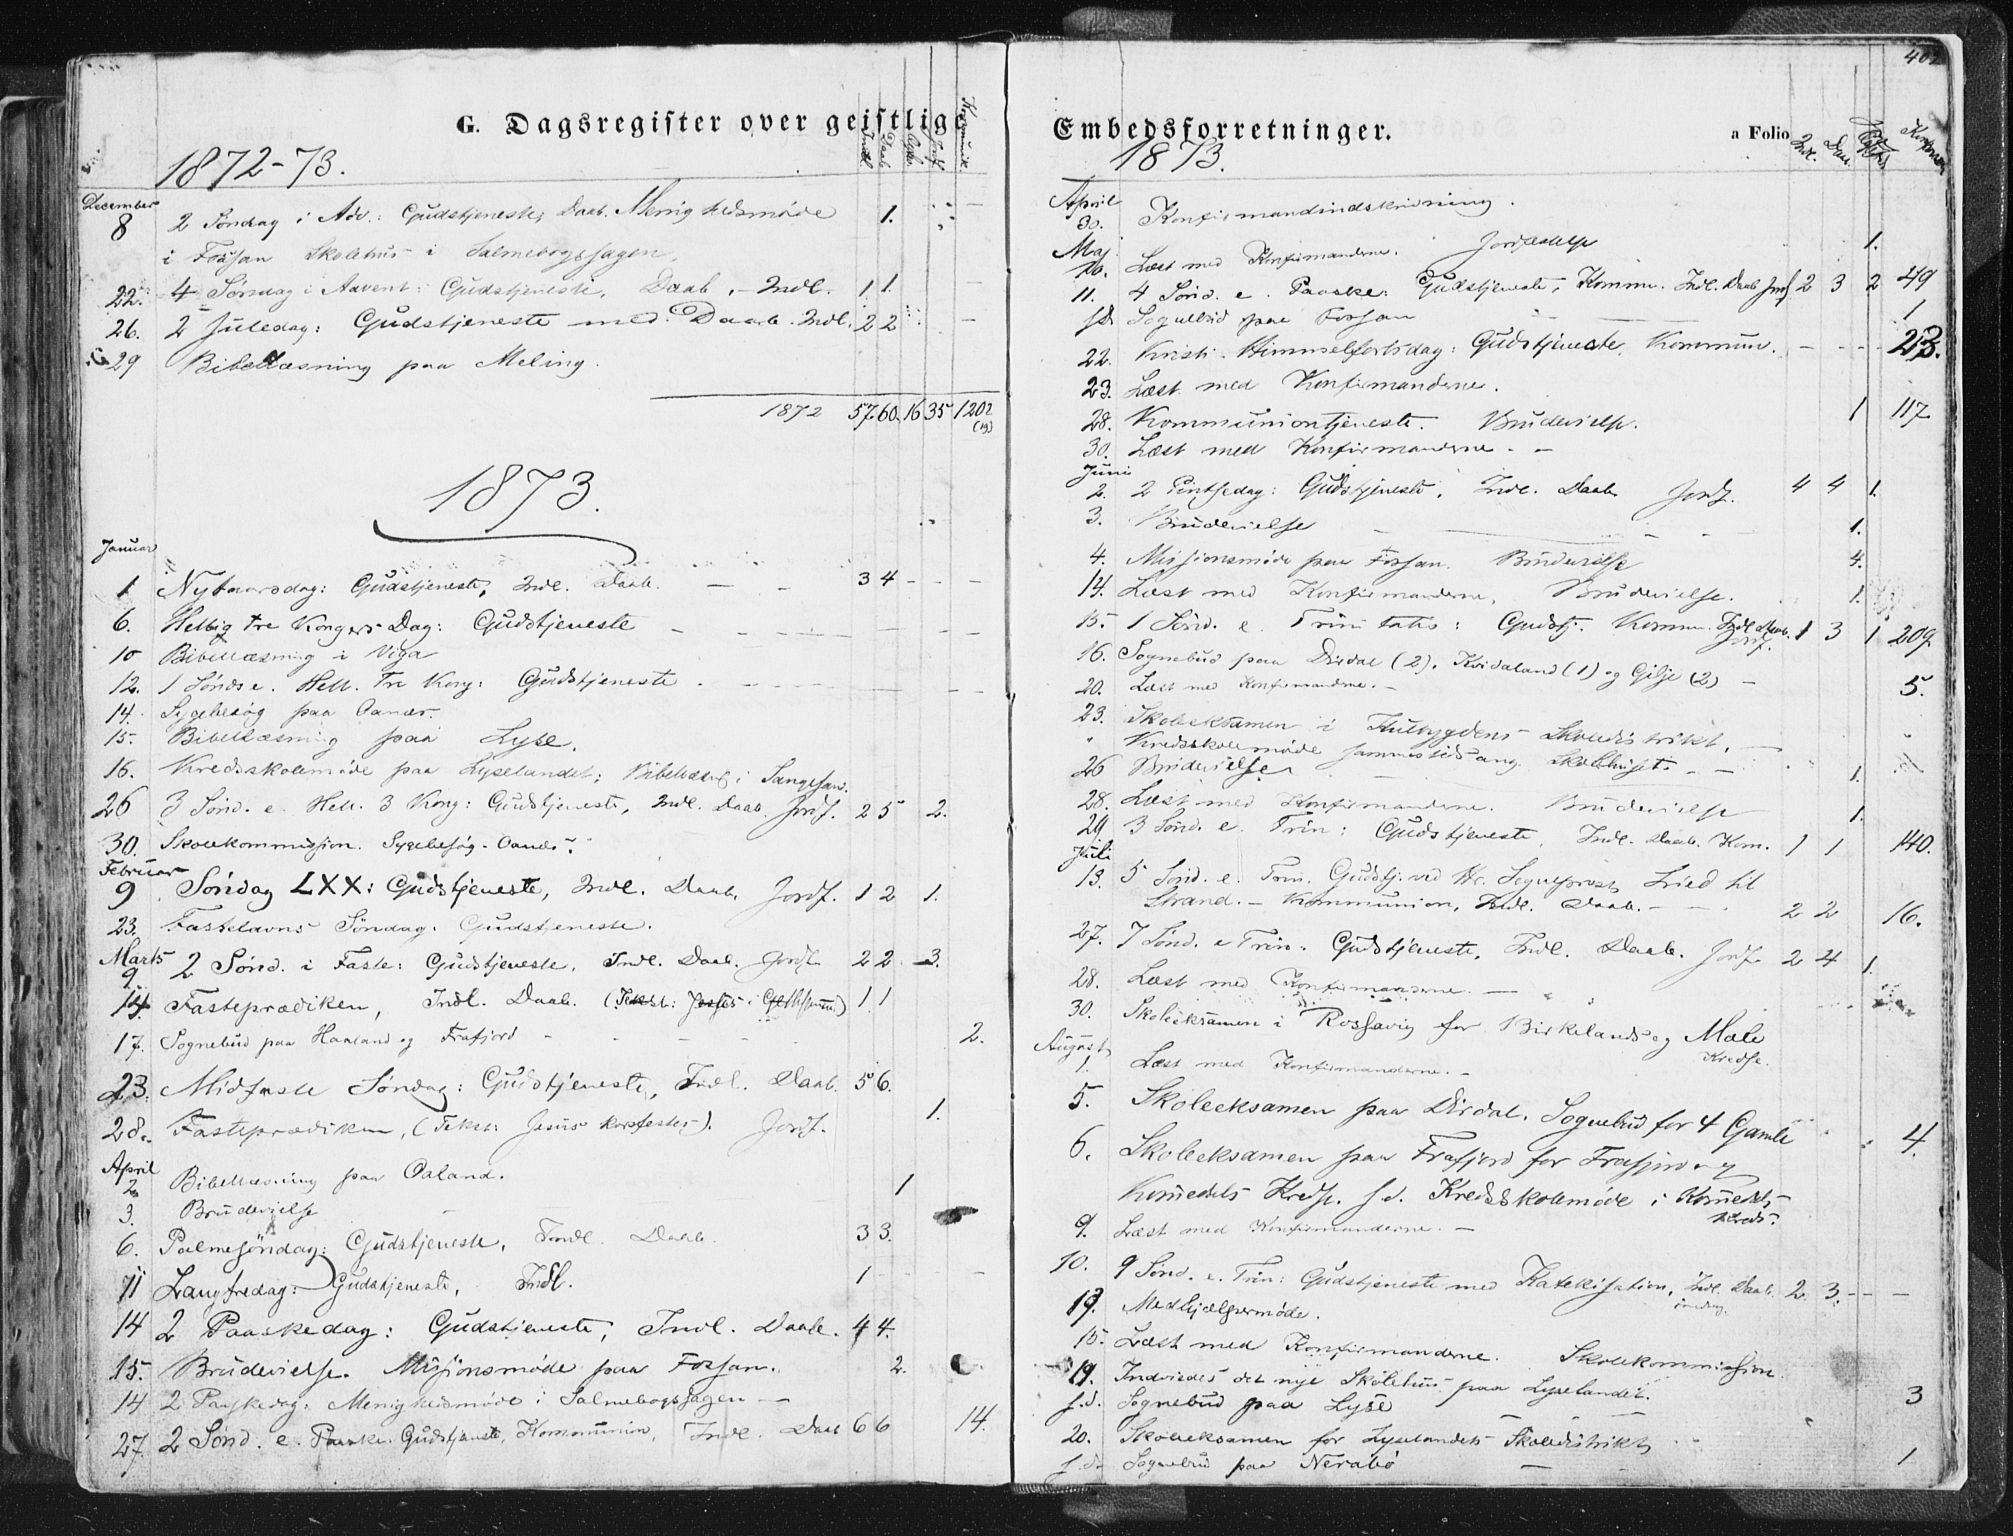 G. Dagsregister over geistlige
1872-73.
Indl. Daab. Jordf. Kommunik.
December
8 2 Søndag i Adv.: Gudstjeneste, Daab. Menighedsmøde 1.
i Fossan Skolehus i Salmebogssagen.
22. 4 Søndag i Advent: Gudstjeneste, Daab, Indl. 1 1.
26. 2 Juledag: Gudstjeneste med Daab. Indl. 2 2
29 Bibellæsning paa Meling.
1872 57 60 16 35 1202
(19)
1873.
Januar
1 Nytaarsdag: Gudstjeneste, Indl. Daab. — - - 3 4 - - -
6. Hellig tre Kongers Dag: Gudstjeneste
10 Bibellæsning i Viga
12. 1 Sønds e. Hell. tre Kong: Gudstjeneste
14. Sygebesøg paa Oanæs.
15. Bibellæsning paa Lyse.
16. Kredsskolemøde paa Lyselandet; Bibellæsn. i Sangesan.
26 3 Sønd. e. Hell. 3 Kong: Gudstjeneste, Indl. Daab. Jordf. 2 5 2.
30. Skolekommission. Sygebesøg - Oanæs.
Februar
9 Søndag LXX: Gudstjeneste, Indl. Daab. Jordf. 1 2 1.
23. Fastelavns Søndag: Gudstjeneste.
Marts
9. 2 Sønd. i Faste: Gudstjeneste, Indl. Daab. Jordf. 2 2 3.
14. Fasteprædiken, Indl. Daab. (Tekst: Jesus i Gethsemane) 1 1
17. Sognebud paa Haaland og Frafjord - - 2.
23. Midfaste Søndag: Gudstjeneste, Indl. Daab. 5 6.
28. Fasteprædiken, (Tekst: Jesus korsfestes). Jordf. 1.
April
2 Bibellæsning paa Oaland.
3. Brudevielse 1
6. Palmesøndag: Gudstjeneste, Indl. Daab. 3 3.
11 Langfredag: Gudstjeneste, Indl. 1
14 2 Paaskedag: Gudstjeneste, Indl. Daab. 4 4.
15. Brudevielse. Missionsmøde paa Fossan. 2.
14 2 Paaskedag: Menighedsmøde i Salmebogssagen —
27. 2 Sønd. e. Paaske. Gudstjeneste, Kommunion, Indl. Daab 6 6 14.
Embedsforretninger.
a Folio
1873.
Indl.
April
30. Konfirmandindskrivning.
Maj
10. Læst med Konfirmanderne. Jordfæstelse 1.
11. 4 Sønd. e. Paaske: Gudstjeneste, Kommu. Indl. Daab Jordf 2 3 2 49
s.D. Sognebud paa Fossan 1
22. Kristi Himmelfartsdag: Gudstjeneste, Kommun. — - - - 23.
23. Læst med Konfirmanderne.
28. Kommuniontjeneste. Brudevielse. 1 117
30. Læst med Konfirmanderne - -
Juni
2. 2 Pintsedag: Gudstjeneste, Indl. Daab Jordf. 4 4 1.
3. Brudevielse 1.
4. Missionsmøde paa Fossan. Brudevielse 4.
14. Læst med Konfirmanderne, Brudevielse. 1.
15. 1 Sønd. e. Trinitatis: Gudstj. Kommu. Indl. Daab. Jordf. 1 3 1 209.
16. Sognebud paa Dirdal (2), Kvidaland (1) og Gilje (2) - 5.
20. Læst med Konfirmanderne. -
23. Skoleeksamen i Hulbygdens Skoledistrikt. —
" Kredsskolemøde sammesteds ang. Skolehuset. - -
26 Brudevielse 1.
28. Læst med Konfirmanderne. Brudevielse 1.
29 3 Sønd. e. Trin: Gudstjeneste, Indl. Daab. Kom. 1 1 140.
Juli
13. 5 Sønd. e. Trin. Gudstj. ved Hr. Sogneprest Lied til
Strand. - Kommunion, Indl. Daab. - 2 2 16.
27. 7 Sønd. e Trin: Gudstjeneste, Indl. Daab. Jordf. 2 4 1.
28. Læst med Konfirmanderne. —
30. Skoleeksamen i Rossavig for Birkelands og Mæle
Kredse.
August
1. Læst med Konfirmanderne. -
5. Skoleeksamen paa Dirdal. Sognebud for 4 Gamle 4.
6. Skoleeksamen paa Frafjord for Frafjord og
Komedels Kredse. s.d. Kredsskolemøde i Komedels
Kreds.
9. Læst med Konfirmanderne. —
10. 9 Sønd. e. Trin: Gudstjeneste med Katekisation, Indl. Daab. 2 3. - - —
13. Medhjælpermøde.
15. Læst med Konfirmanderne. Skolekommission.
19. Indviedes det nye Skolehus paa Lyselandet.
s.d. Sognebud paa Lyse 3
20. Skoleeksamen for Lyselandets Skoledistrikt
s.d. Sognebud paa Nerabø — — 1